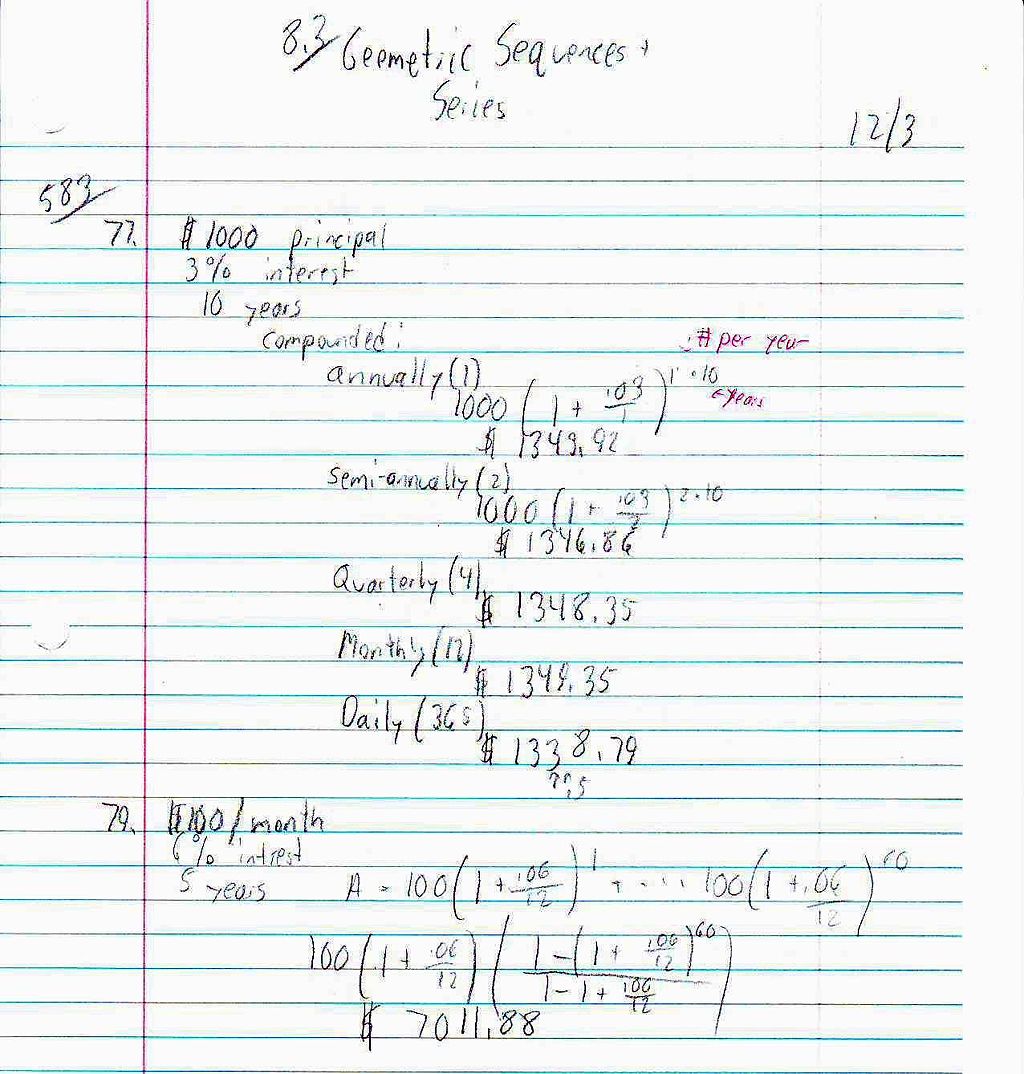 8.3 Geometric Sequences +
Series
12/3
583
77. $1000 principal
3% interest
10 years
compounded:
# per year
annually (1)
1000 (1 + .03/1)^1·10
←years
$ 1349.92
semi-annually (2)
1000 (1 + .03/2)^2·10
$ 1346.86
Quarterly (4)
$ 1348.35
Monthly (12)
$ 1349.35
Daily (365)
$ 1338.79
79. $100/month
6% intrest
5 years A = 100(1 + .06/12)^1 + ... 100(1 + .06/12)^60
100 (1 + .06/12) (1 - (1 + .06/12)^60 / 1 - 1 + .06/12)
$ 7011.88